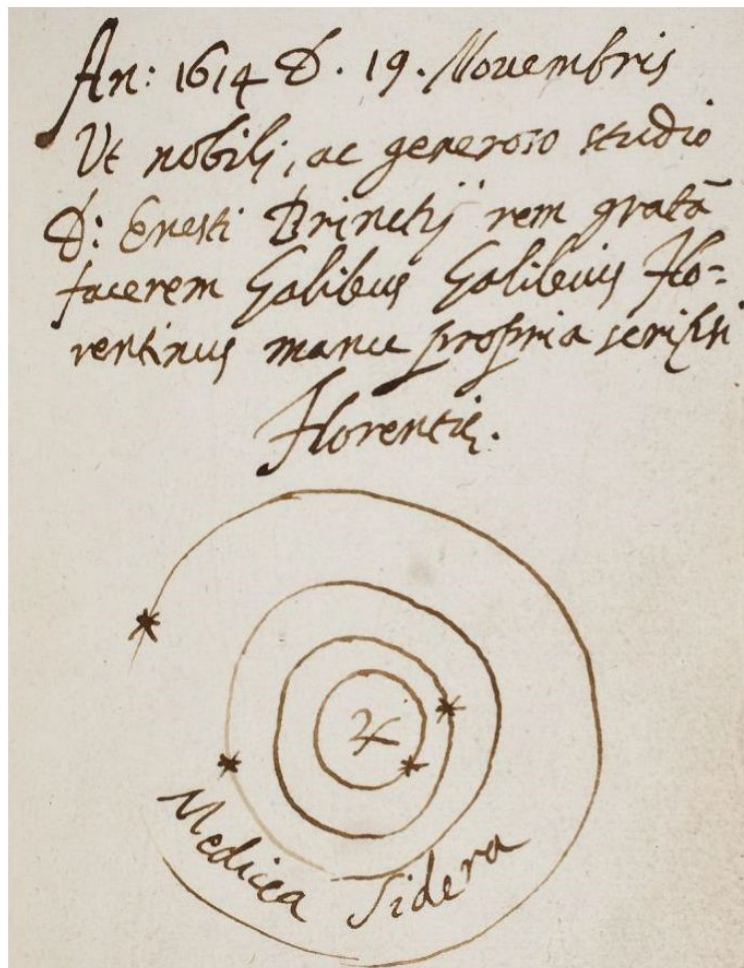 An: 1614 D. 19. Nouembris
Ut nobili, ac generoso studio
D: Ernesti Brinckij rem gratã
facerem Galileus Galileius Flo=
rentinus manu propria scripsi
Florentię.
♃
Medicea Sidera